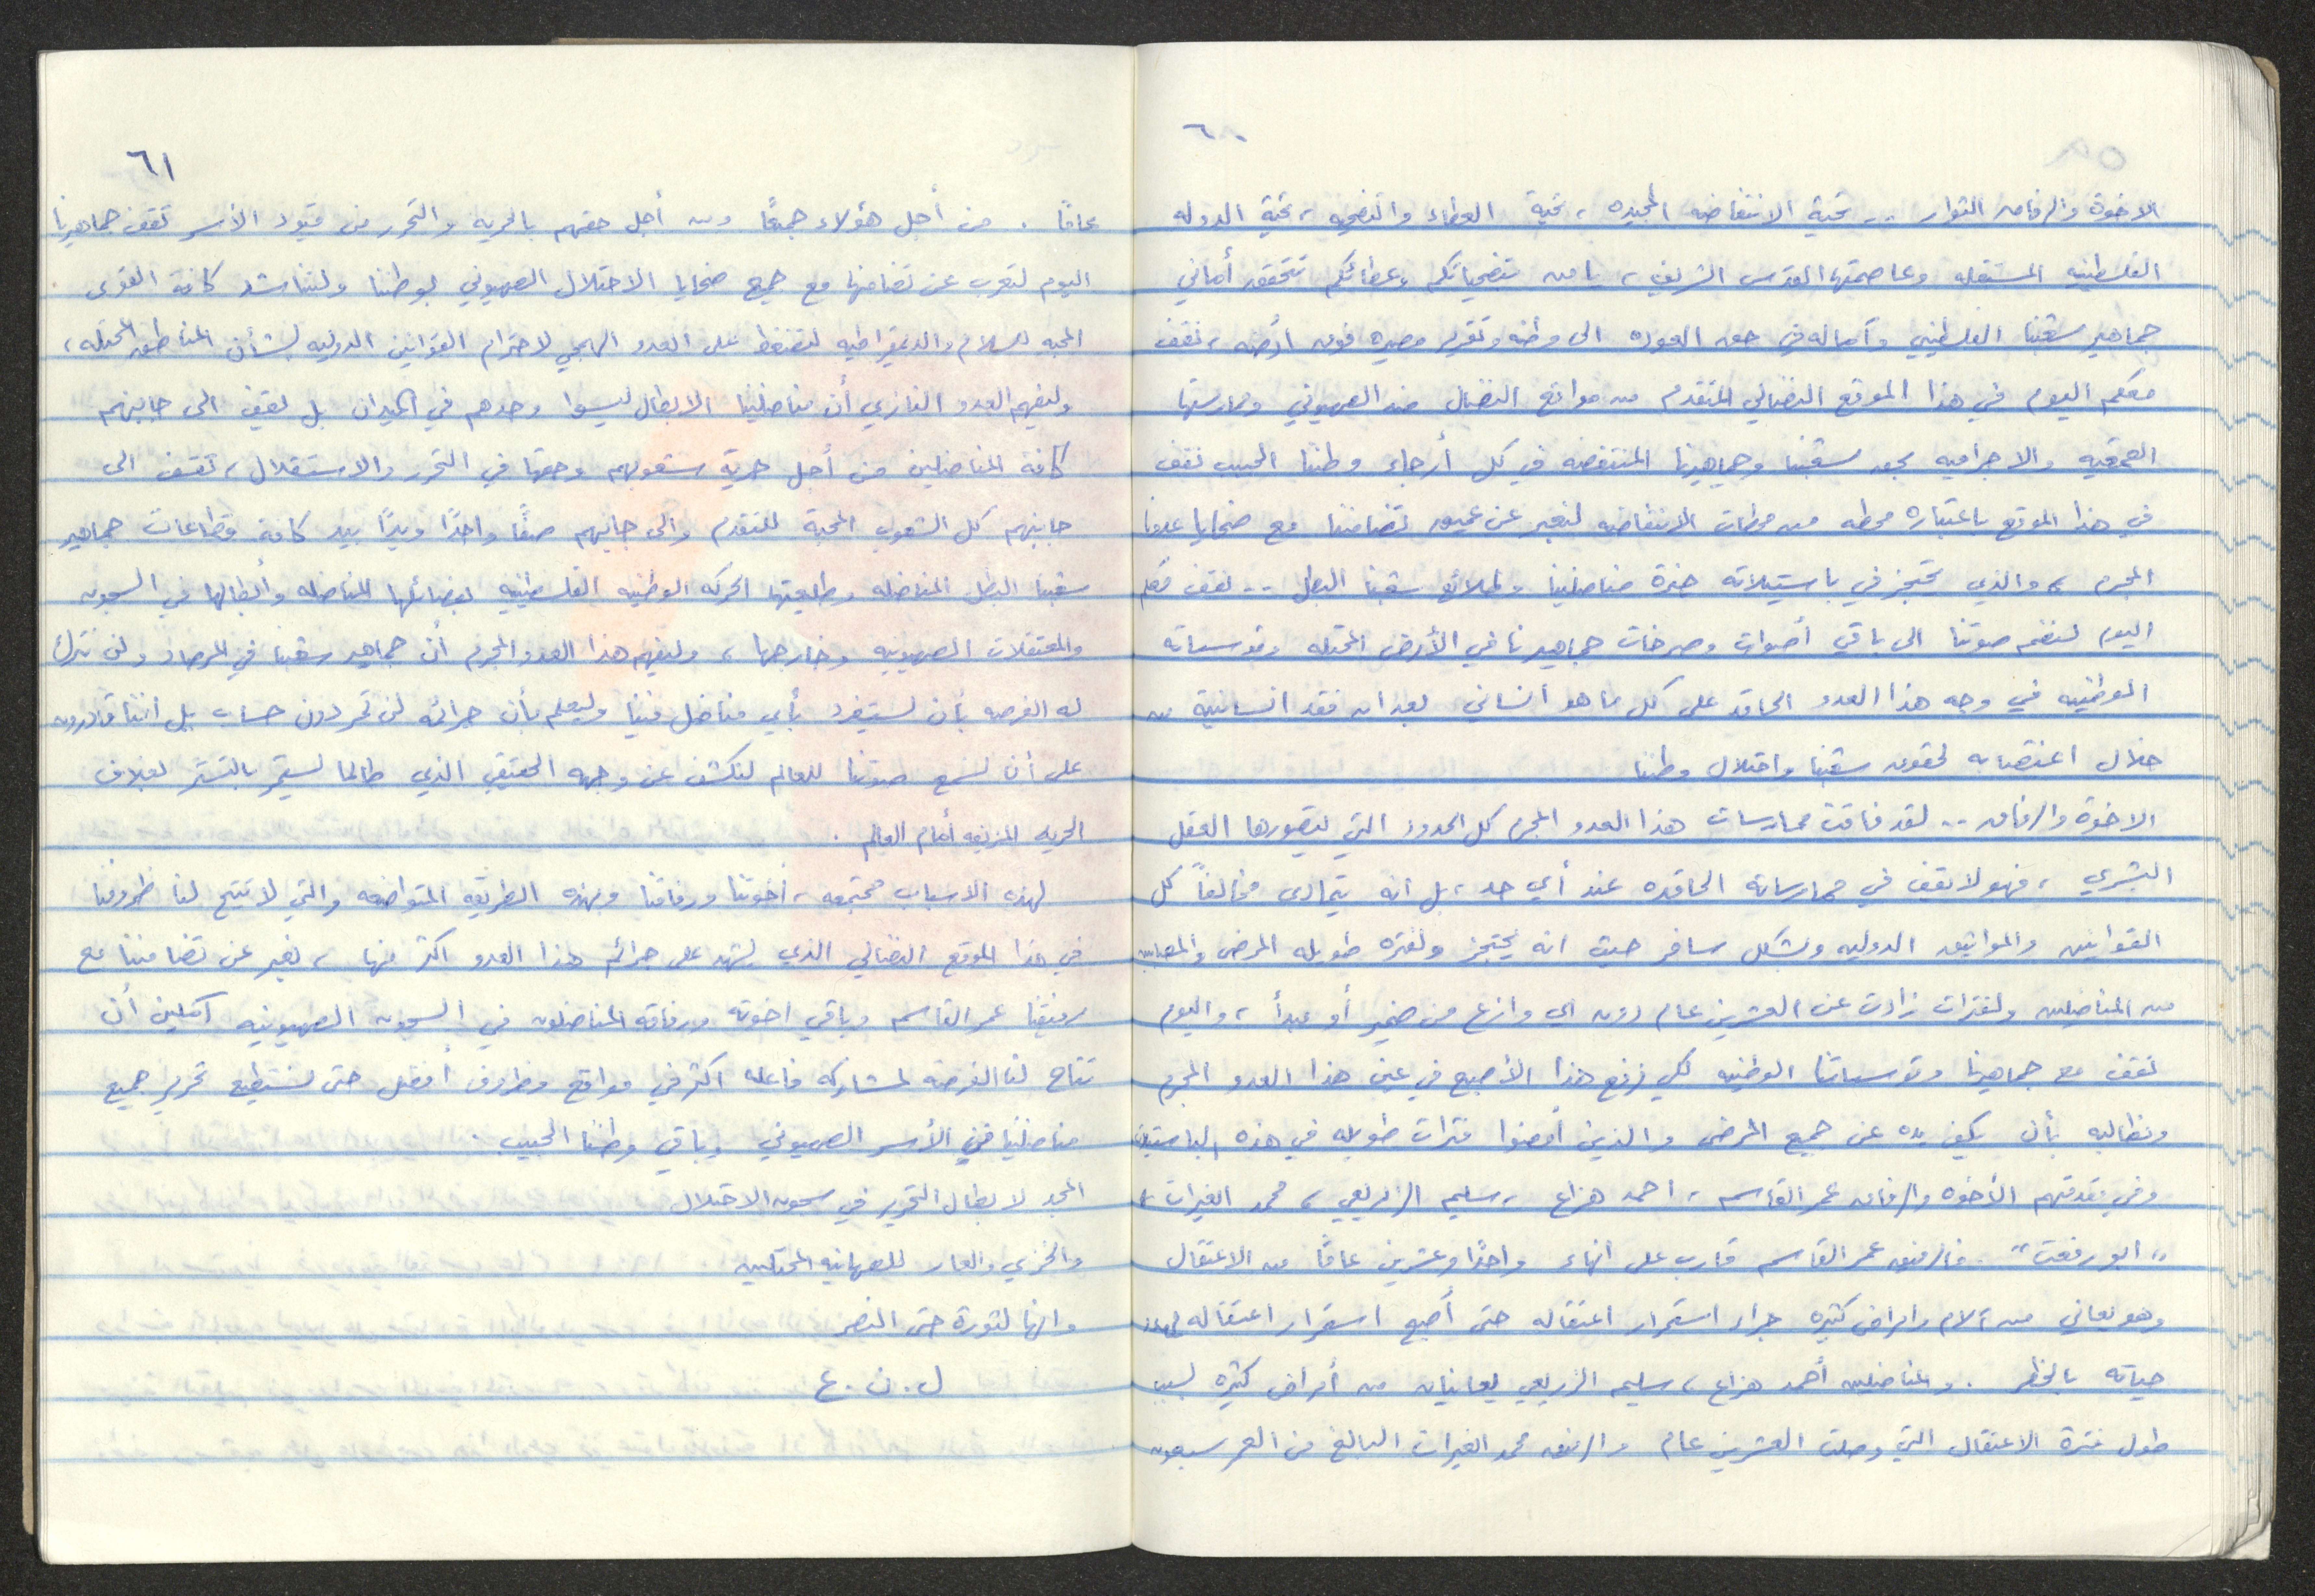 ٦٠
الاخوة والرفاق الثوار .. تحية الانتفاضه المجيده ، تحية العطاء والتضحيه ، تحية الدوله
الفلسطينيه المستقله وعاصمتها القدس الشريف ، يا من بتضحياتكم وعطائكم تتحقق أماني
جماهير شعبنا الفلسطيني وآماله في حق العوده الى وطنه وتقرير مصيره فوق أرضه ، نقف
معكم اليوم في هذا الموقع النضالي المتقدم من مواقع النضال ضد الصهيوني وممارستها
القمعيه والاجراميه بحق شعبنا وجماهيرنا المنتفضه في كل أرجاء وطننا الحبيب نقف
في هذا الموقع باعتباره محطه من محطات الانتفاضه لنعبر عن عميق تضامننا مع ضحايا عدونا
المجرم ، والذي تحتجز في باستيلاته خيرة مناضلينا وطلائع شعبنا البطل .. نقف معكم
اليوم لنضم صوتنا الى باقي أصوات وصرخات جماهيرنا في الأرض المحتله ومؤسساته
الوطنيه في وجه هذا العدو الحاقد على كل ما هو انساني بعد ان فقد انسانيته من
خلال اغتصابه لحقوق شعبنا واحتلال وطننا
الاخوة والرفاق .. لقد فاقت ممارسات هذا العدو المجرم كل الحدود التي يتصورها العقل
البشري ، فهو لا يقف في ممارساته الحاقده عند أي حد ، بل انه يتمادى مخالفاً كل
القوانين والمواثيق الدوليه وبشكل سافر حيث انه يحتجز ولفتره طويله المرضى والمصابين
من المناضلين ولفترات زادت عن العشرين عام دون اي وازع من ضمير أو مبدأ ، واليوم
نقف مع جماهيرنا ومؤسساتنا الوطنيه لكي نرفع هذا الأصبع في عين هذا العدو المجرم
ونطالبه بأن يكف يده عن جميع المرضى والذين أمضوا فترات طويله في هذه الباستيلات
وفي مقدمتهم الأخوه والرفاق عمر القاسم ، احمد هزاع ، سليم الزريعي ، محمد الغيرات ،
" ابو رفعت " . فالرفيق عمر القاسم قارب على انهاء واحدًا وعشرين عامًا من الاعتقال
وهو يعاني من آلام وامراض كثيره جراء استمرار اعتقاله حتى أصبح استمرار اعتقاله يهدد
حياته بالخطر . والمناضلين أحمد هزاع ، سليم الزريعي يعانيان من أمراض كثيره بسبب
طول فترة الاعتقال التي وصلت العشرين عام والرفيق محمد الغيرات البالغ من العمر سبعون
٦١
عامًا . من أجل هؤلاء جميعًا ومن أجل حقهم بالحريه والتحرر من قيود الأسر تقف جماهيرنا
اليوم لتعرب عن تضامنها مع جميع ضحايا الاحتلال الصهيوني لوطننا ولتناشد كافة القوى
المحبه للسلام والديمقراطيه لتضغط على العدو الهمجي لاحترام القوانين الدوليه بشأن المناطق المحتله ،
وليفهم العدو النازي أن مناضلينا الابطال ليسوا وحدهم في الميدان بل يقف الى جانبهم
كافة المناضلين من أجل حرية شعوبهم وحقها في التحرر والاستقلال ، تقف الى
جانبهم كل الشعوب المحبة للتقدم والى جانبهم صفًا واحدًا ويدًا بيد كافة قطاعات جماهير
شعبنا البطل المناضله وطليعتها الحركه الوطنيه الفلسطينيه بفصائلها المناضله وأبطالها في السجون
والمعتقلات الصهيونيه وخارجها ، وليفهم هذا العدو المجرم أن جماهير شعبنا في المرصاد ولن تترك
له الفرصه بأن يستفرد بأي مناضل فينا وليعلم بأن جرائمه لن تمر دون حساب بل اننا قادرون
على أن نسمع صوتنا للعالم لنكشف عن وجهه الحقيقي الذي طالما يستمر بالتستر بغلاف
الحريه المزيفه أمام العالم .
لهذه الاسباب مجتمعه ، أخوتنا ورفاقنا وبهذه الطريقه المتواضعه والتي لا تتيح لنا ظروفنا
في هذا الموقع النضالي الذي يشهد على جرائم هذا العدو اكثر منها ، نعبر عن تضامننا مع
رفيقنا عمر القاسم وباقي اخوته ورفاقه المناضلون في السجون الصهيونيه آملين أن
تتاح لنا الفرصه لمشاركه فاعله اكثر في مواقع وظروف أفضل حتى نستطيع تحرير جميع
مناضلينا من الأسر الصهيوني وباقي وطننا الحبيب .
المجد لابطال التحرير في سجون الاحتلال
والخزي والعار للصهاينه المحتلين
وانها لثورة حتى النصر
ل . ن . ع